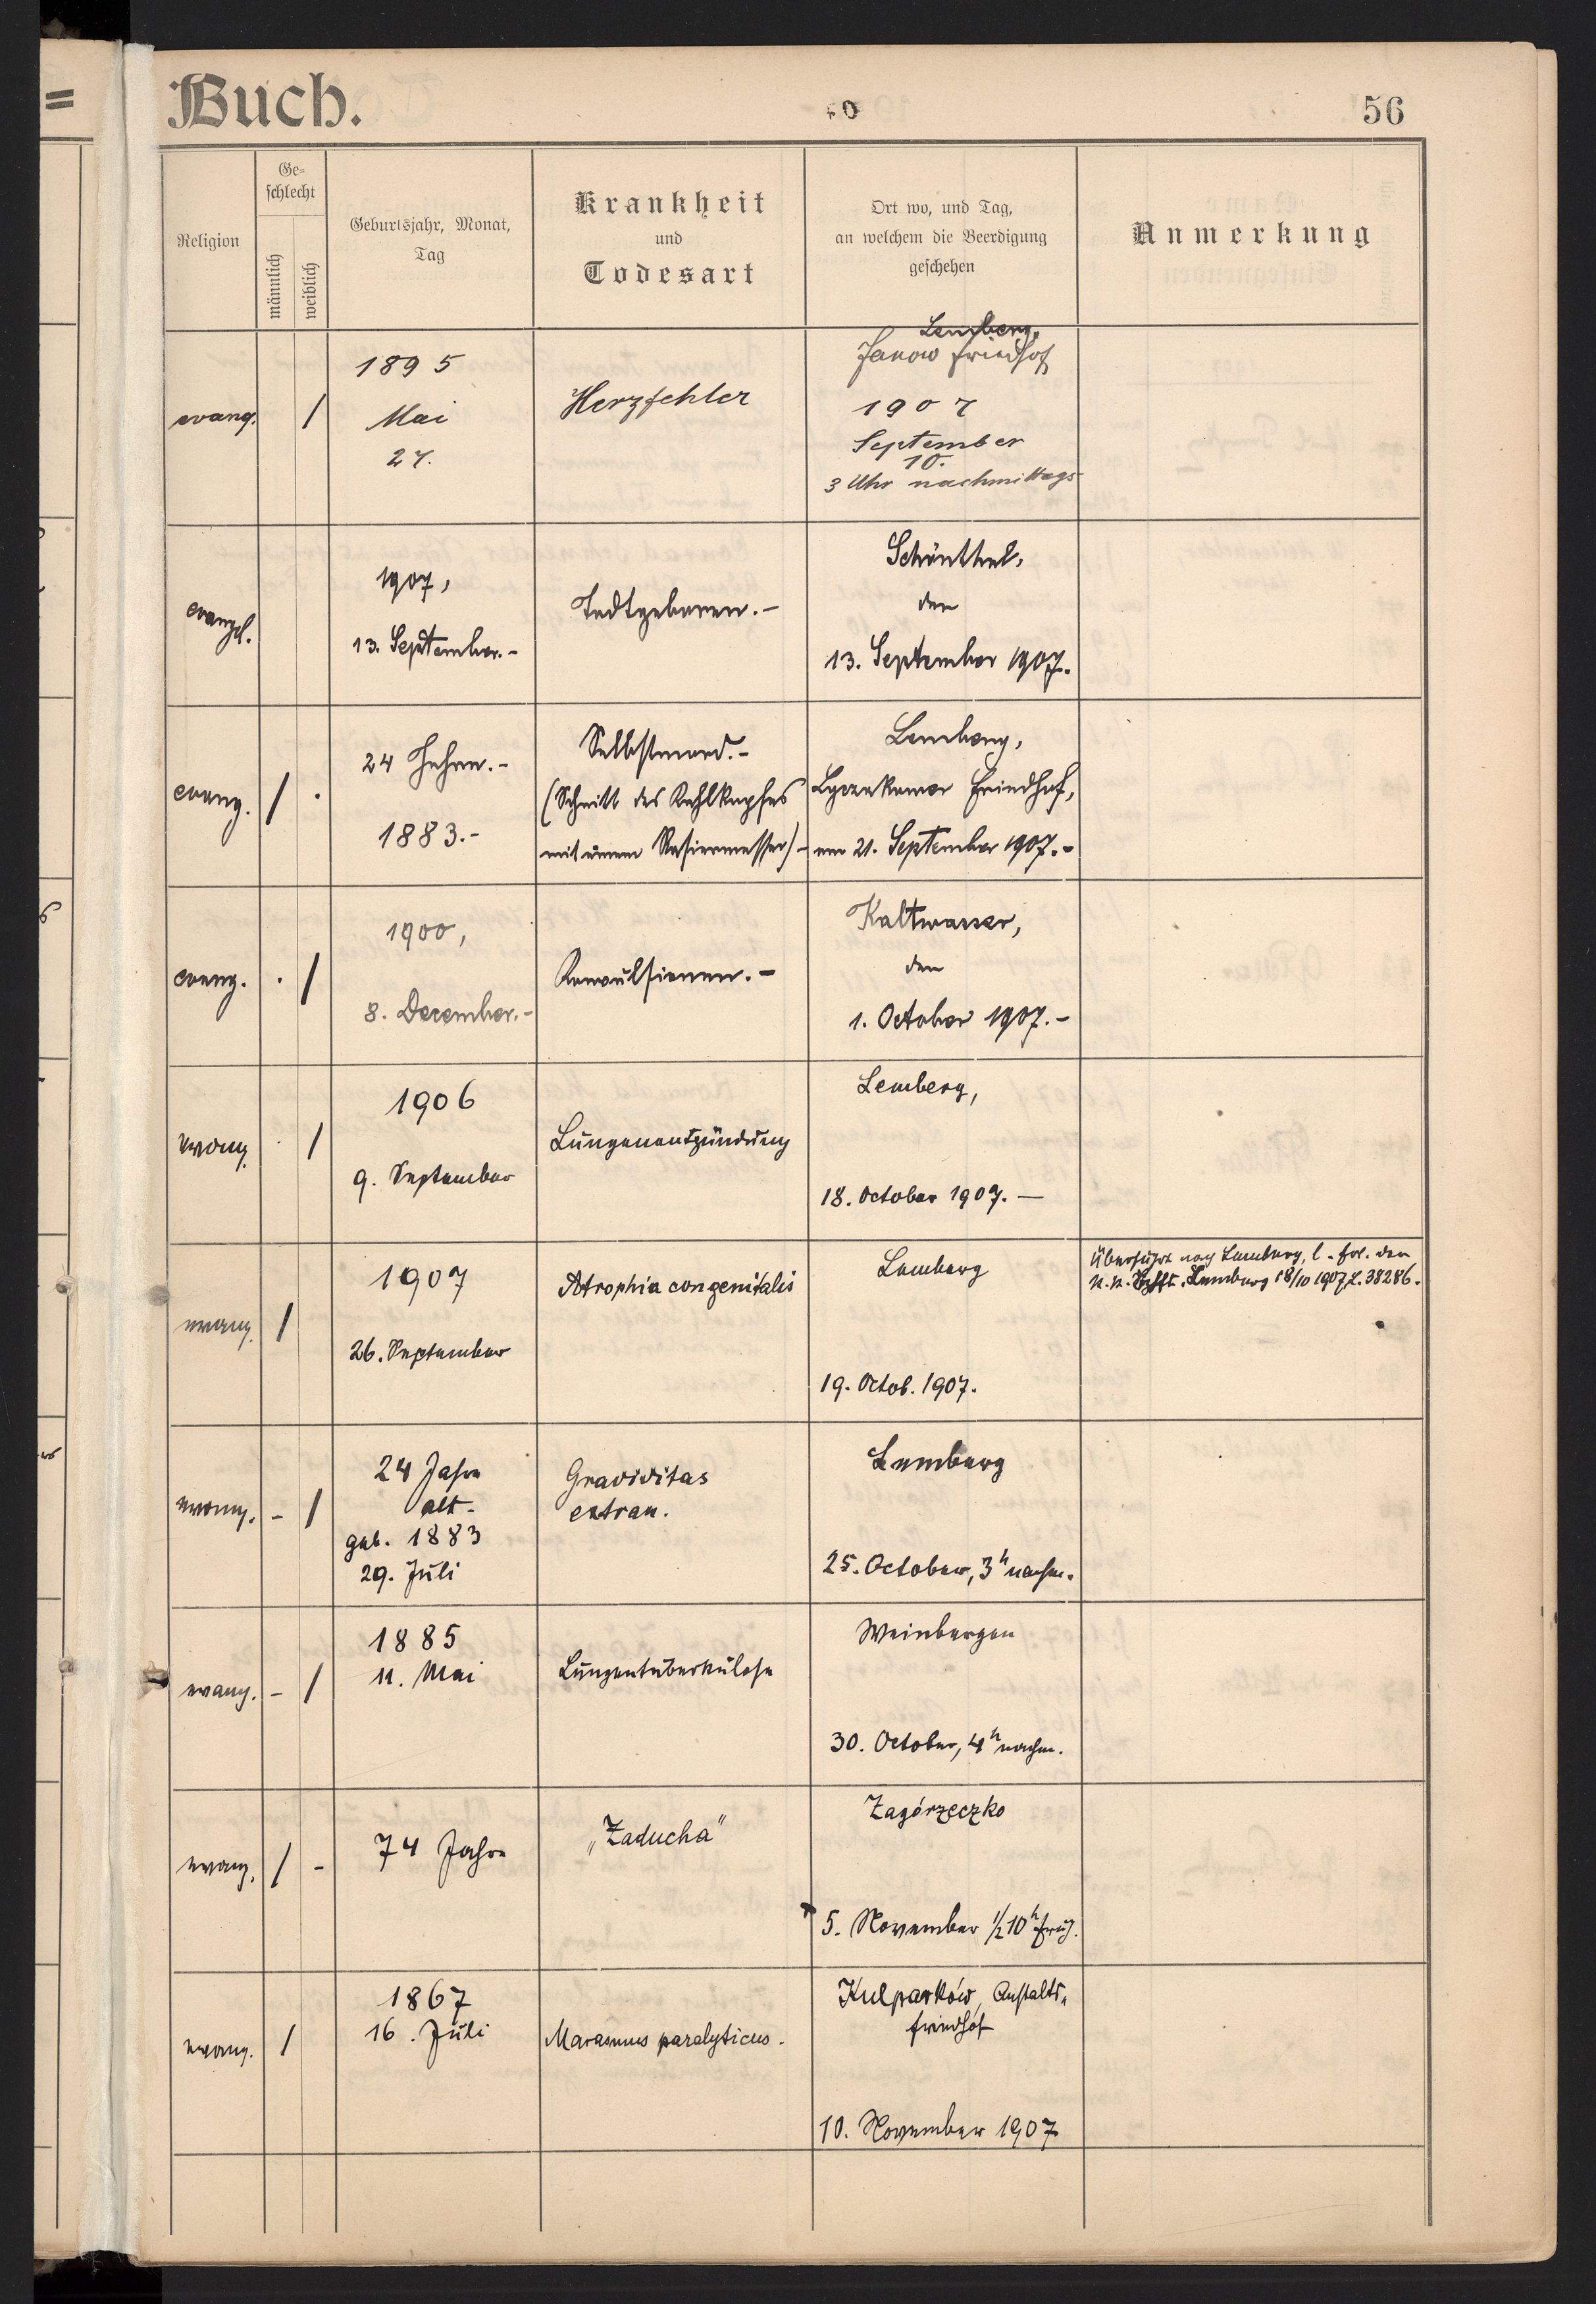 Buch.
56
Religion
Ge-
schlecht
männlich
weiblich
Geburtsjahr, Monat,
Tag
Krankheit
und
Todesart
Ort wo, und Tag,
an welchem die Beerdigung
geschehen
Anmerkung
evang.
/
1895
Mai
27.
Herzfehler
Lemberg,
Janow Friedhof
1907
September
10.
3 Uhr nachmittags
evangel.
1907,
13. September.-
Todtgeboren.-
Schönthal,
den
13. September 1907.
evang.
/
.
24 Jahre.-
1883.-
Selbstmord.-
(Schnitt des Kehlkopfes
mit einem Rasiermesser)-
Lemberg,
Lyczakower Friedhof,
am 21. September 1907.-
evang.
.
/
1900,
8. December.-
Konvulsionen.-
Kaltwasser,
den
1. October 1907.-
evang.
.
/
1906
9. September
Lungenentzündung
Lemberg,
18. October 1907. —
evang.
/
1907
26. September
Atrophia congenitalis
Lemberg
19. Octob. 1907.
Überführt nach Lemberg, l. Erl. der
k.k. Lemberg 18/10 1907 Z. 38286.
evang.
-
/
24 Jahre
alt-
geb. 1883
29. Juli
Graviditas
extrau.
Lemberg
25. October, 3h nachm.
evang.
-
/
1885
11. Mai
Lungentuberkulose
Weinbergen
30. October, 4h nachm.
evang.
/
-
74 Jahre
„Zaducha"
Zagórzeczko
5. November 1/2 10h früh.
evang.
/
1867
16. Juli
Marasmus paralyticus.
Kulparków, Anstalts-
friedhof
10. November 1907